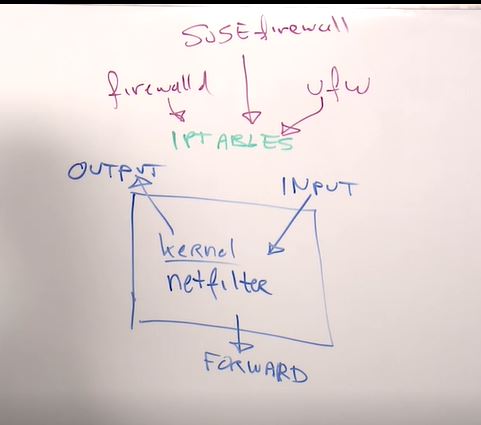 SUSEfirewall
firewalld
ufw
IPTABLES
OUTPUT
INPUT
kernel
netfilter
FORWARD